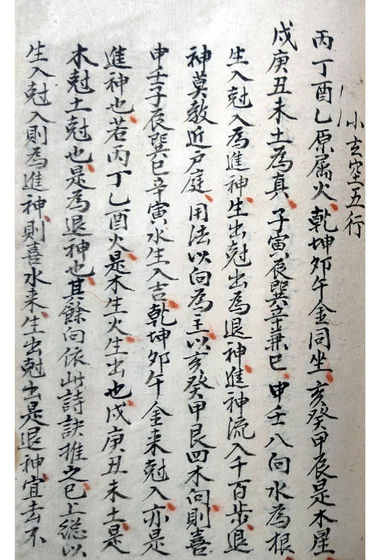 小玄空五行
丙丁酉乙原屬火乾坤卯午金同坐亥癸甲艮是木星
戌庚丑未土為真子寅辰巽辛兼巳申壬八向水為根
生入尅入為進神生出尅出為退神進神流入千百步退
神莫教近户庭用法以向為主以亥癸甲艮四木向則喜
申壬子辰巽巳辛寅水生入吉乾坤卯午金来尅入亦是
進神也若丙丁乙酉火是木生火生出也戌庚丑未土是
木尅土尅也是為退神也其餘向依此詩訣推之已上総以
生入尅入則為進神則喜水来生出尅出是退神宜去不